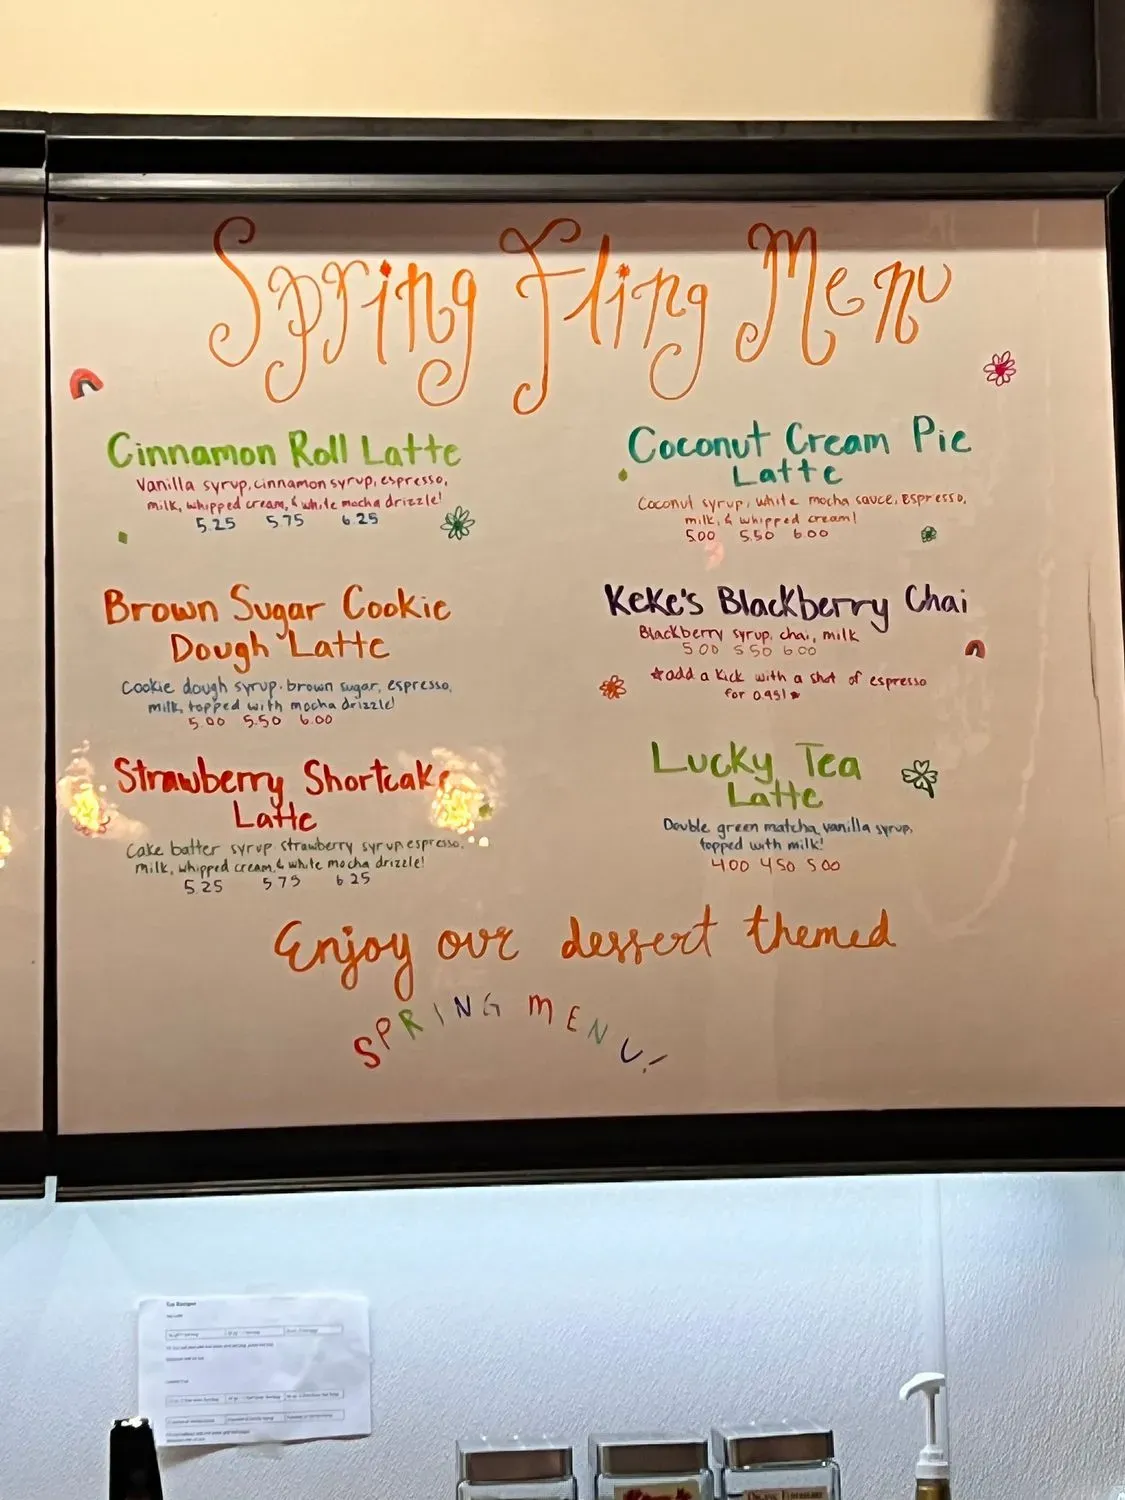 Spring Fling Menu
Cinnamon Roll Latte
Vanilla syrup, cinnamon syrup, espresso,
milk, whipped cream, & white mocha drizzle!
5.25 5.75 6.25
Brown Sugar Cookie
Dough Latte
Cookie dough syrup, brown sugar, espresso,
milk, topped with mocha drizzle!
5.00 5.50 6.00
Strawberry Shortcake
Latte
Cake batter syrup strawberry syrup espresso,
milk, whipped cream, & white mocha drizzle!
5.25 5.75 6.25
Coconut Cream Pie
Latte
Coconut syrup, white mocha sauce, espresso,
milk, & whipped cream!
5.00 5.50 6.00
KeKe's Blackberry Chai
Blackberry syrup, chai, milk
5.00 5.50 6.00
★add a kick with a shot of espresso
for 0.95!★
Lucky Tea
Latte
Double green matcha, vanilla syrup,
topped with milk!
4.00 4.50 5.00
Enjoy our dessert themed
SPRING MENU!